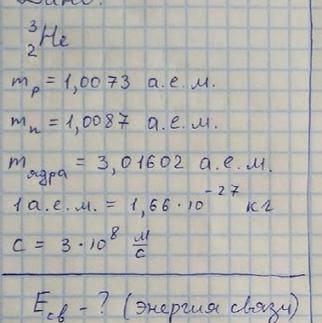 Дано:
³₂He
m_p = 1,0073 а.е.м.
m_n = 1,0087 а.е.м.
m_ядра = 3,01602 а.е.м.
1 а.е.м. = 1,66·10⁻²⁷ кг
c = 3·10⁸ м/с
E_св - ? (энергия связи)